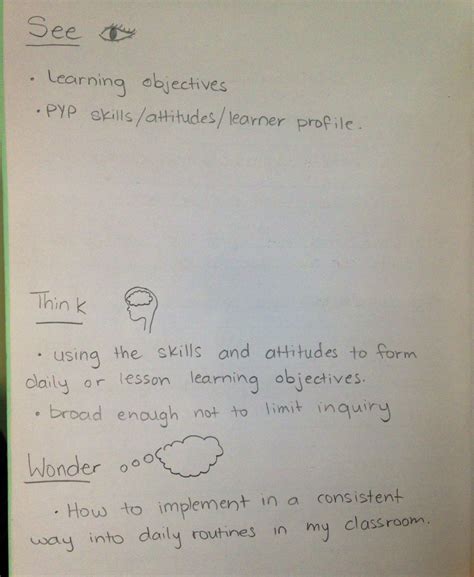 See
• Learning objectives
• PYP skills/attitudes/learner profile.
Think
• using the skills and attitudes to form
daily or lesson learning objectives.
• broad enough not to limit inquiry
Wonder
• How to implement in a consistent
way into daily routines in my classroom.